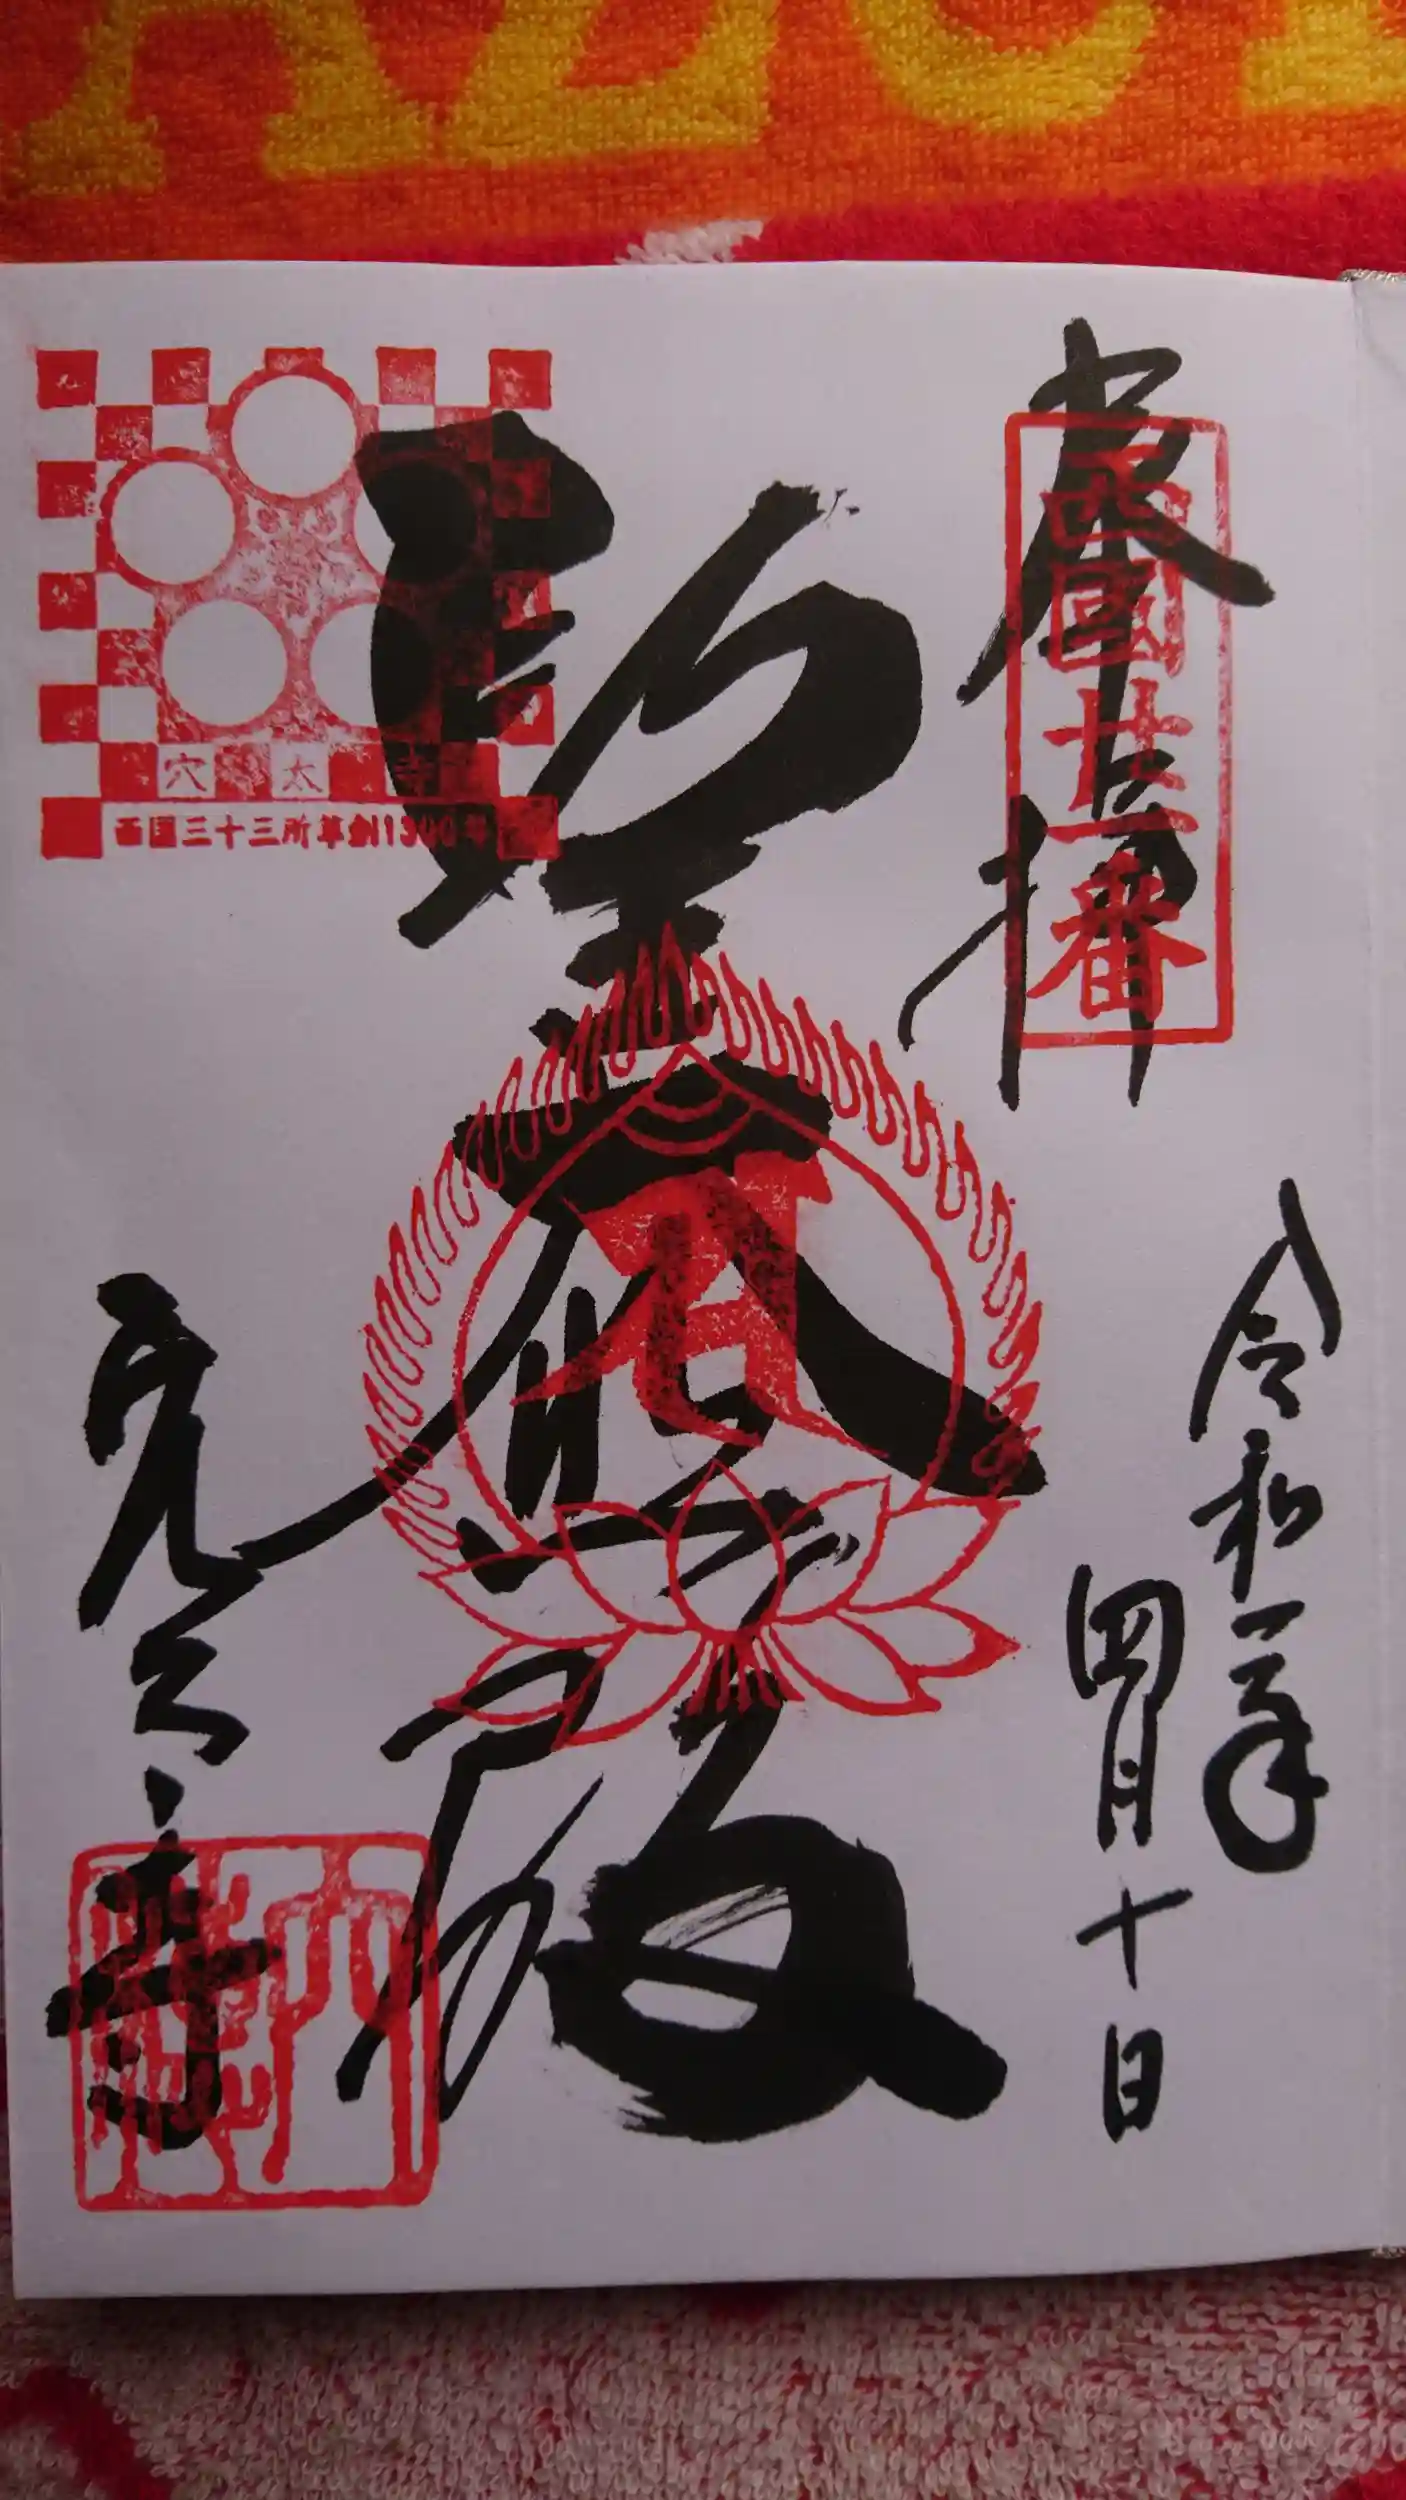 奉拝
西國廿一番
令和 年
四月十日
聖大悲殿
穴太寺
西国三十三所草創1300年
穴太寺